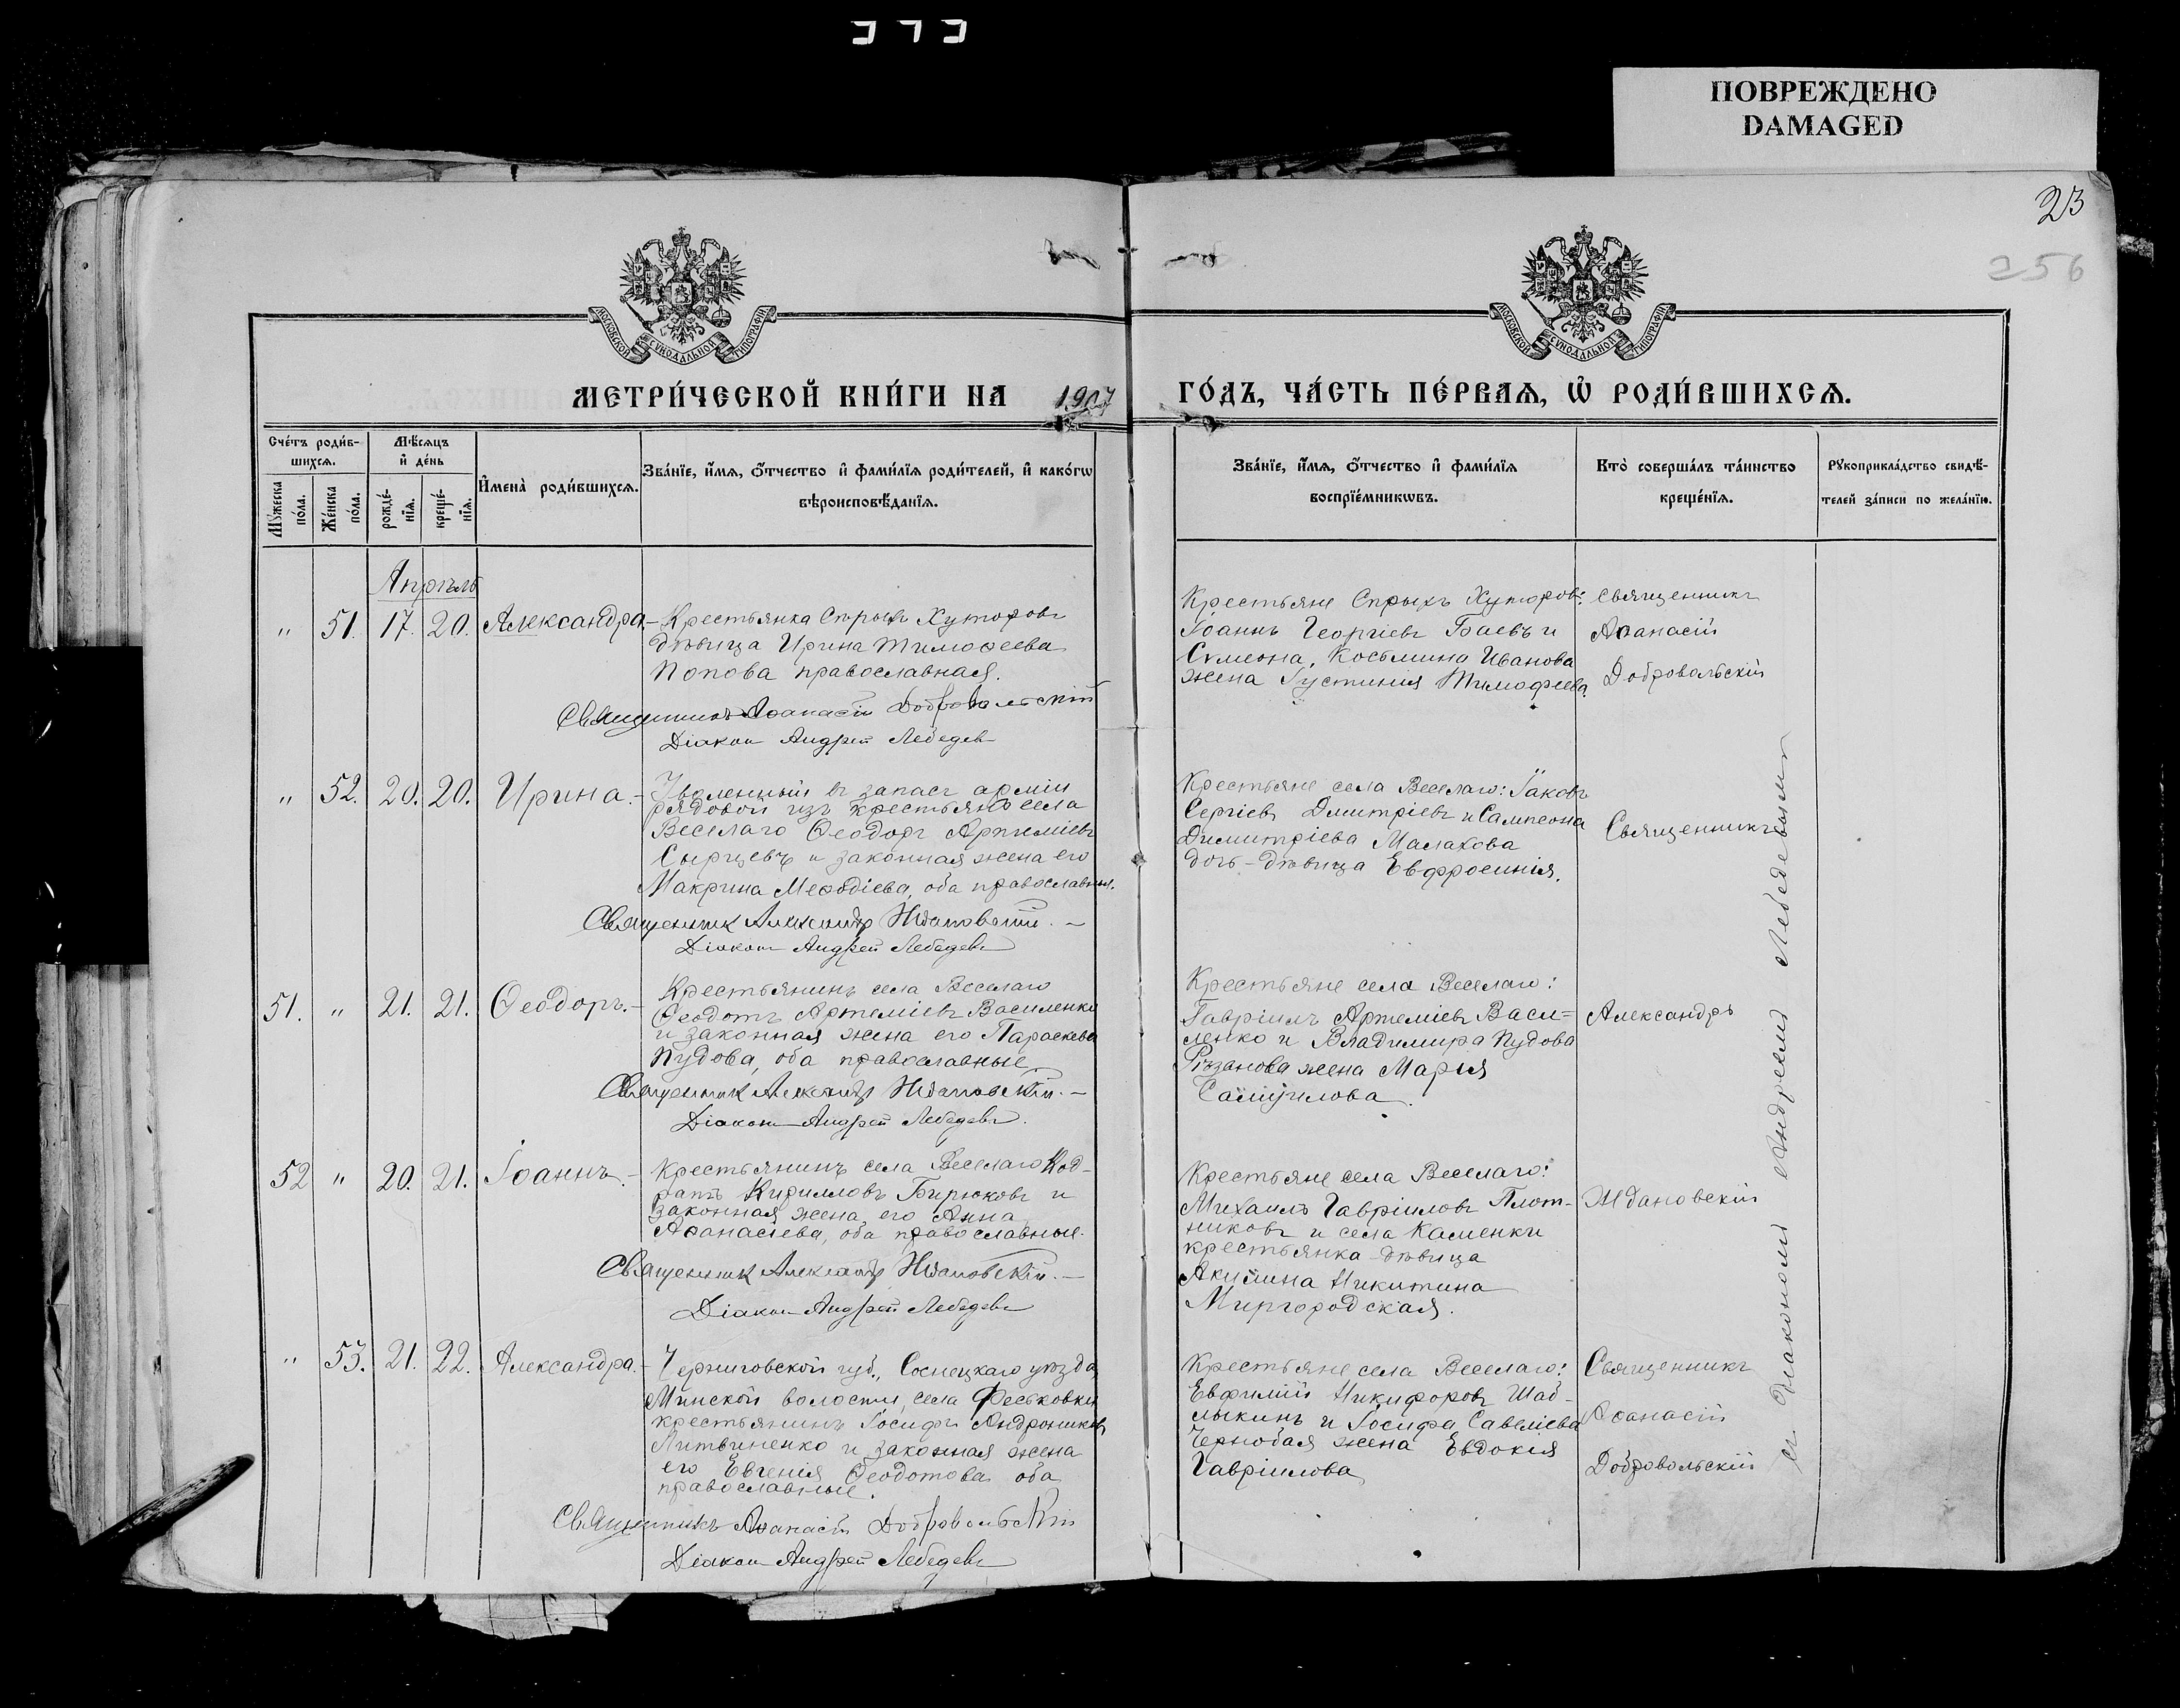 ПОВРЕЖДЕНО
DAMAGED
23
256
МОСКОВСКОЙ СѴНОДАЛЬНОЙ ТИПОГРАФІИ
МОСКОВСКОЙ СѴНОДАЛЬНОЙ ТИПОГРАФІИ
МЕТРИ́ЧЕСКОЙ КНИ́ГИ НА 1907 ГО́ДЪ, ЧА́СТЬ ПЕ́РВАѦ, Ѽ РОДИ́ВШИХСѦ.
Сче́тъ роди́в-
шихсѧ.
Мꙋ́жеска по́ла.
Же́нска по́ла.
Мѣ́сѧцъ и҆ де́нь
рожде́-нїѧ.
креще́-нїѧ.
И҆мена̀ роди́вшихсѧ.
Зва́нїе, и҆́мѧ, ѻ҆́тчество и҆ фами́лїѧ роди́телей, и҆ како́гѡ
вѣроисповѣ́данїѧ.
Зва́нїе, и҆́мѧ, ѻ҆́тчество и҆ фами́лїѧ
воспрїе́мникѡвъ.
Кто̀ соверша́лъ та́инство
креще́нїѧ.
Рꙋкоприкла́дство свидѣ́-
телей за́писи по жела́нїю.
Апрѣль
" 51. 17. 20. Александра.-
Крестьянка Старыхъ Хуторовъ
дѣвица Ирина Тимоѳеева
Попова православная.
Священникъ Аѳанасій Добровольскій
Діаконъ Андрей Лебедевъ
Іоаннъ Георгіевъ Баевъ и
Сѵмеона, Косьмина Иванова
жена Іустинія Тимофеева.
Священникъ
Аѳанасій
Добровольскій
" 52. 20. 20. Ирина.-
Уволенный въ запасъ арміи
рядовой изъ крестьянъ села
Веселаго Ѳеодоръ Артеміевъ
Сырцевъ и законная жена его
Макрина Меѳодіева, оба православн.
Священникъ Александръ Ждановскій.-
Діаконъ Андрей Лебедевъ
Крестьяне села Веселаго: Іаковъ
Сергіевъ Дмитріевъ и Сампсона
Димитріева Малахова
дочь-дѣвица Евфросинія.
Священникъ
51. " 21. 21. Ѳеодоръ.-
Крестьянинъ села Веселаго
Ѳеодотъ Артеміевъ Василенко
и законная жена его Параскева
Пудова, оба православные
Священникъ Александръ Ждановскій.-
Діаконъ Андрей Лебедевъ.
Крестьяне села Веселаго:
Гавріилъ Артеміевъ Васи=
ленко и Владимира Пудова
Рѣзанова жена Марія
Самуилова.
Александръ
52 " 20. 21. Іоаннъ.-
Крестьянинъ села Веселаго Код-
ратъ Кирилловъ Бирюковъ и
законная жена его Анна
Аѳанасіева, оба православные.
Священникъ Александръ Ждановскій.-
Діаконъ Андрей Лебедевъ
Крестьяне села Веселаго:
Михаилъ Гавріиловъ Плот-
никовъ и села Каменки
крестьянка-дѣвица
Акилина Никитина
Миргородская.
Ждановскій
" 53. 21. 22. Александра.-
Черниговской губ., Сосницкаго уѣзда,
Мѣнской волости, села Феськовки
крестьянинъ Іосифъ Андрониковъ
Литвиненко и законная жена
его Евгенія Ѳеодотова оба
православные.
Священникъ Аѳанасій Добровольскій
Діаконъ Андрей Лебедевъ
Крестьяне села Веселаго:
Евфимій Никифоровъ Шаб-
лыкинъ и Іосифа Савеліева
Чернобая жена Евдокія
Гавріилова
Священникъ
Аѳанасій
Добровольскій
съ діакономъ Андреемъ Лебедевымъ